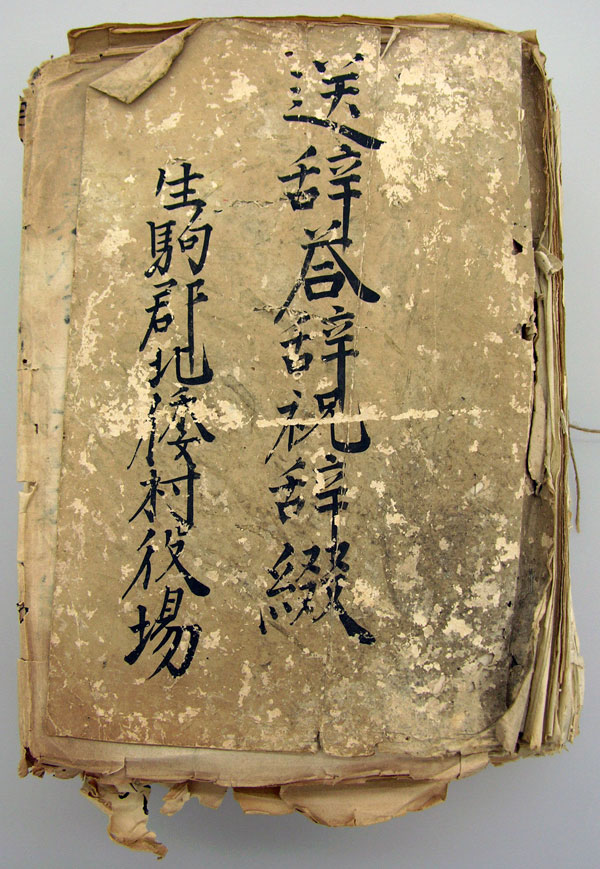 送辞荅辞祝辞綴
生駒郡北倭村役場